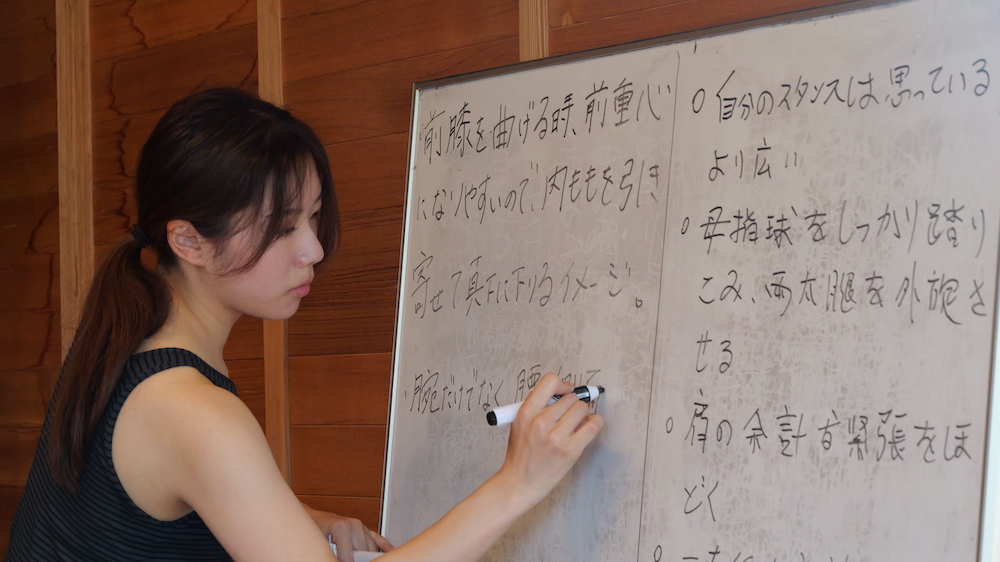 前膝を曲げる時、前重心
になりやすいので、内ももを引き
寄せて真下に下りるイメージ。
腕だけでなく腰
○ 自分のスタンスは思っている
より広い
○ 母指球をしっかり踏り
こみ、両太腿を外旋さ
せる
○ 肩の余計な緊張をほ
どく